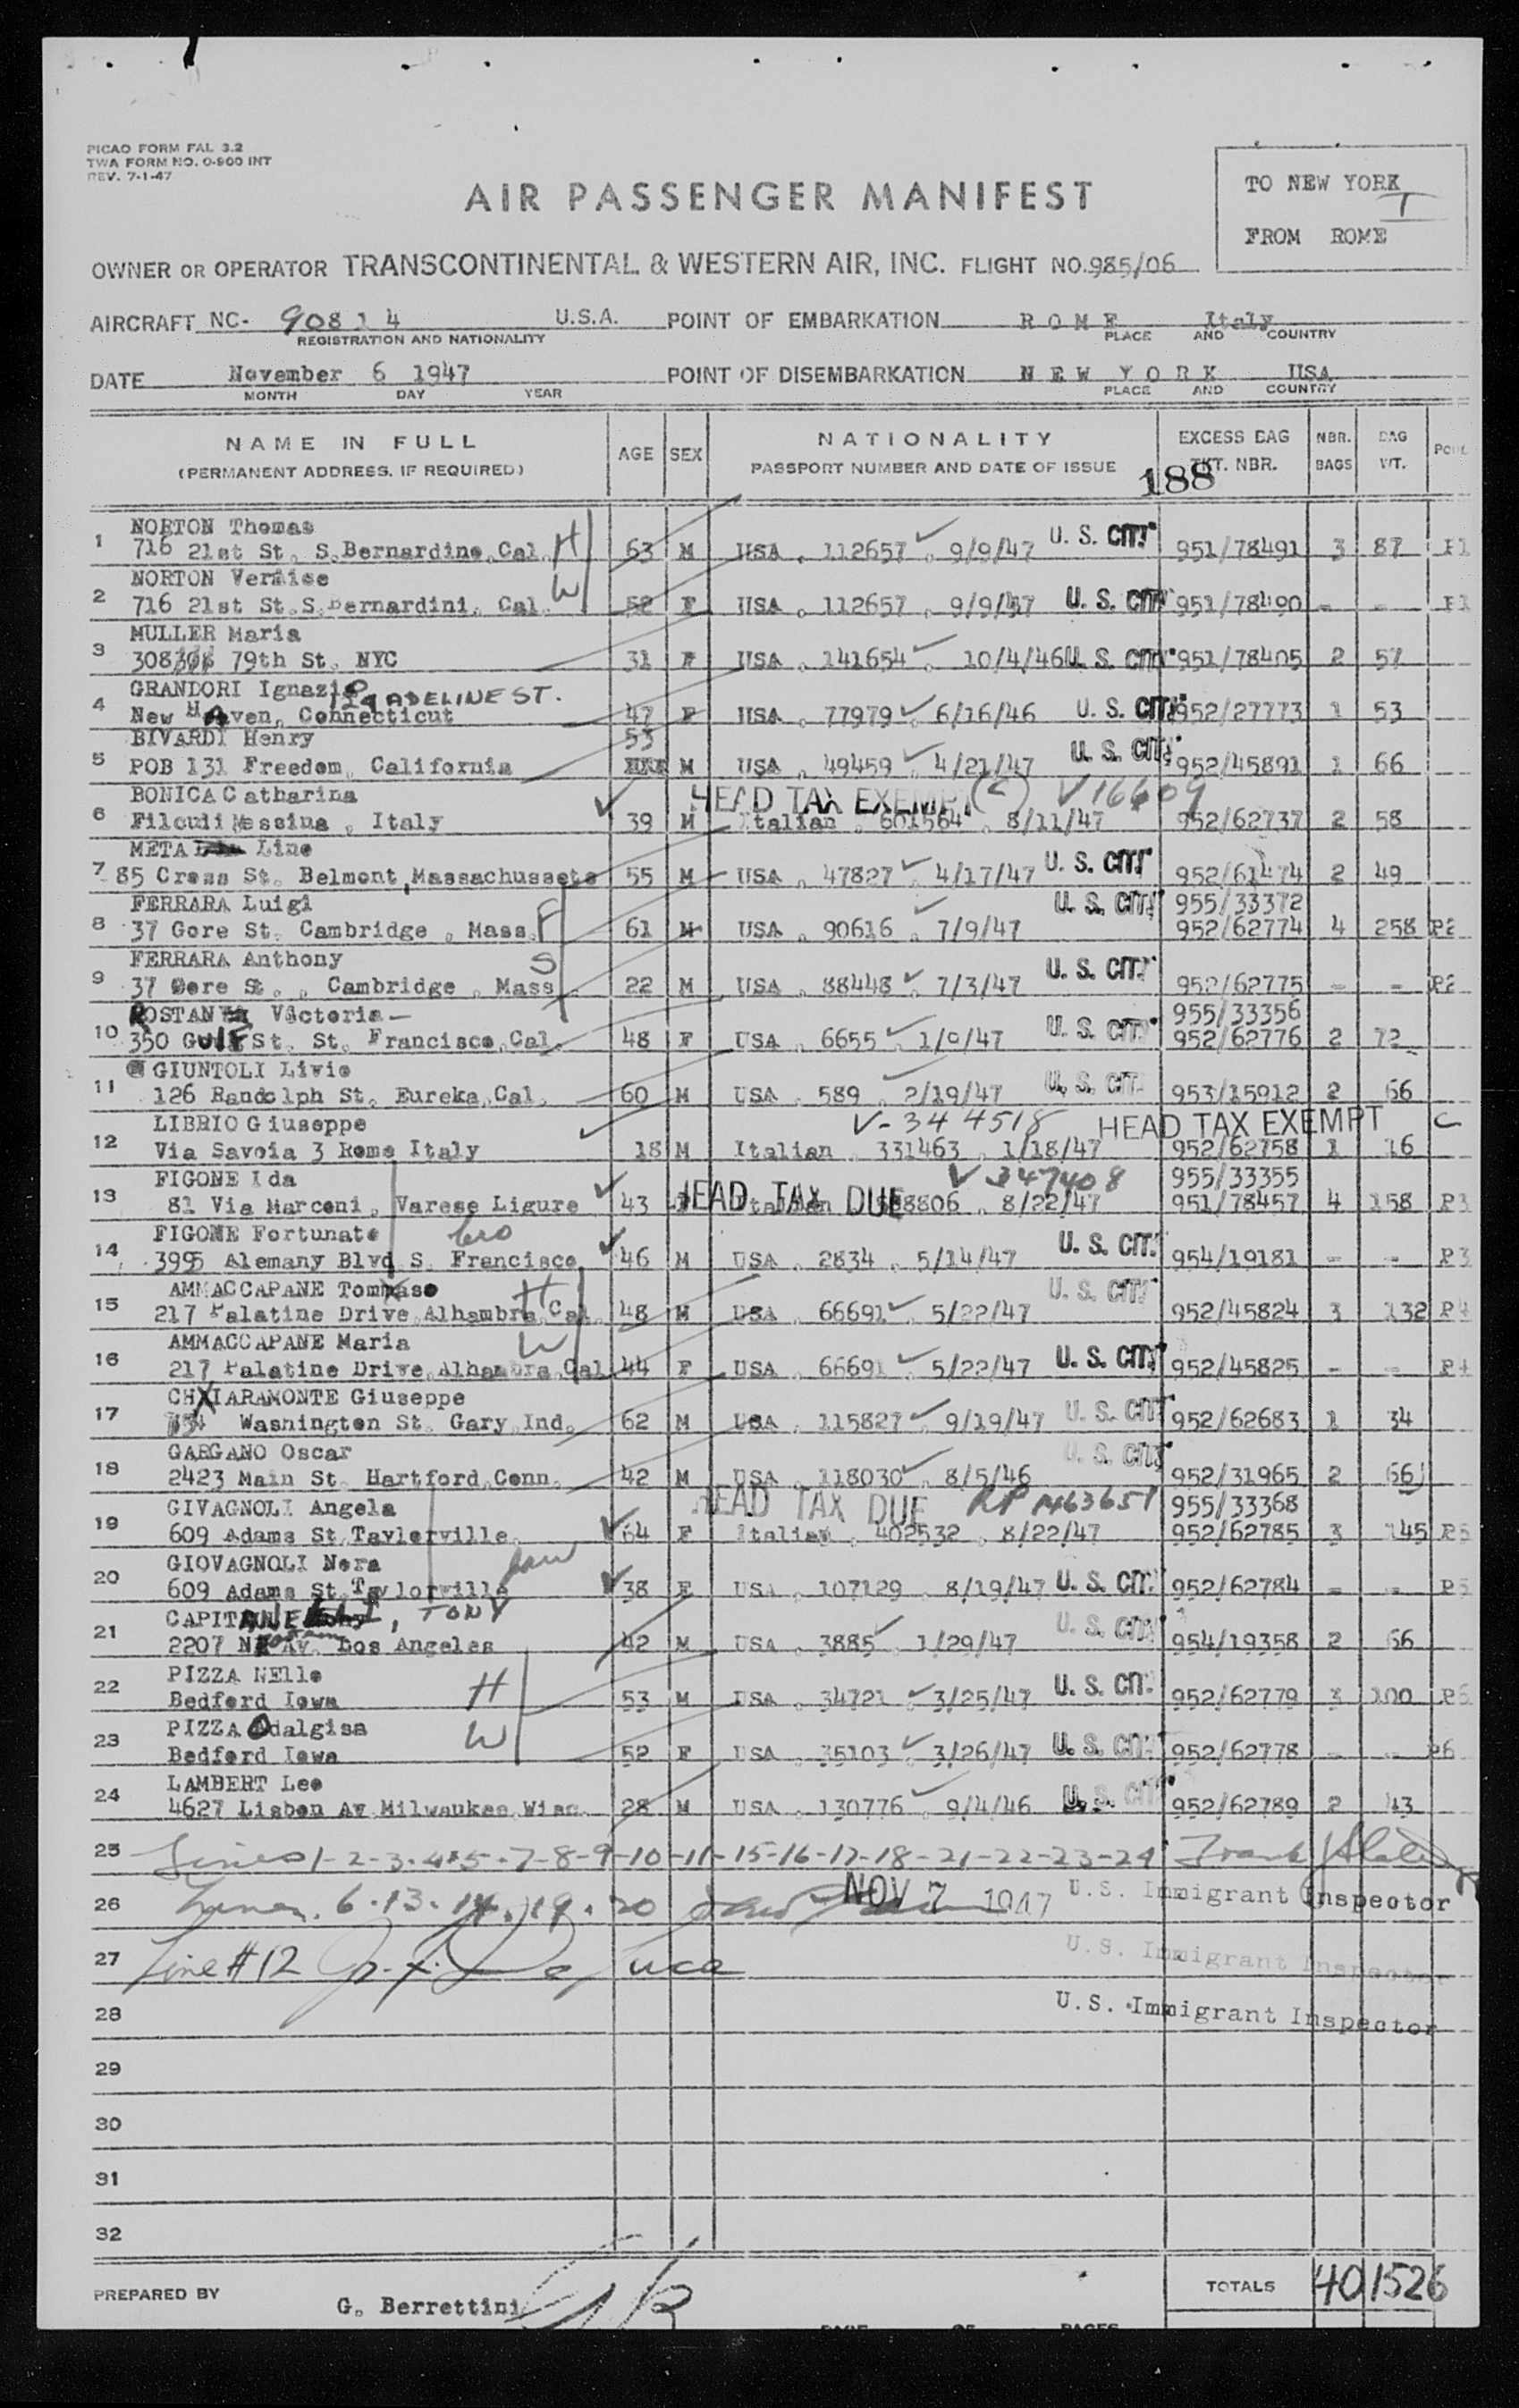 PICAO FORM FAL 3.2
TWA FORM NO. O-900 INT
REV. 7-1-47
TO NEW YORK
FROM ROME
AIR PASSENGER MANIFEST
OWNER OR OPERATOR TRANSCONTINENTAL & WESTERN AIR, INC. FLIGHT NO. 985/06
AIRCRAFT NC- 90814 U.S.A. POINT OF EMBARKATION ROME Italy
REGISTRATION AND NATIONALITY PLACE AND COUNTRY
DATE November 6 1947 POINT OF DISEMBARKATION NEW YORK USA
MONTH DAY YEAR PLACE AND COUNTRY
NAME IN FULL AGE SEX NATIONALITY EXCESS BAG NBR. BAG
(PERMANENT ADDRESS, IF REQUIRED) PASSPORT NUMBER AND DATE OF ISSUE TKT. NBR. BAGS WT.
188
NORTON Thomas H
1 716 21st St. S.Bernardino, Cal. 63 M USA . 112657 . 9/9/47 U. S. CIT. 951/78491 3 87 P1
NORTON Vernice W
2 716 21st St. S.Bernardini, Cal. 52 F USA . 112657 . 9/9/47 U. S. CIT. 951/78490 - - P1
MULLER Maria
3 308 79th St. NYC 31 F USA . 141654 . 10/4/46 U. S. CIT. 951/78405 2 57
GRANDORI Ignazio 129 ADELINE ST.
4 New Haven, Connecticut 47 F USA . 77979 6/16/46 U. S. CIT. 952/27773 1 53
BIVARDI Henry 53
5 POB 131 Freedom, California M USA . 49459 4/21/47 U. S. CIT. 952/45891 1 66
BONICA Catharina HEAD TAX EXEMPT (C) V16609
6 Filcudi Messina, Italy 39 M Italian . 601564 . 8/11/47 952/62737 2 58
META Lino
7 85 Cross St. Belmont, Massachussets 55 M USA . 47827 . 4/17/47 U. S. CIT. 952/61474 2 49
FERRARA Luigi F U. S. CIT. 955/33372
8 37 Gore St. Cambridge, Mass. 61 M USA . 90616 . 7/9/47 952/62774 4 258 P2
FERRARA Anthony S
9 37 Gere St. , Cambridge, Mass. 22 M USA . 88448 . 7/3/47 U. S. CIT. 952/62775 - - P2
Victoria 955/33356
10 350 St. St. Francisco, Cal. 48 F USA . 6655 . U. S. CIT. 952/62776 2 72
GIUNTOLI Livio
11 126 Randolph St. Eureka, Cal. 60 M USA . 589 . 2/19/47 U. S. CIT. 953/15912 2 66
LIBRIO Giuseppe V-344518 HEAD TAX EXEMPT C
12 Via Savoia 3 Rome Italy 18 M Italian . 331463 . 1/18/47 952/62758 1 16
FIGONE Ida V 347408 955/33355
13 81 Via Marconi, Varese Ligure 43 HEAD TAX DUE 8/22/47 951/78457 4 158 P3
FIGONE Fortunato bro
14 3995 Alemany Blvd S. Francisco 46 M USA . 2834 . 5/14/47 U. S. CIT. 954/19181 - - P3
AMMACCAPANE Tommaso H
15 217 Palatine Drive, Alhambra, Cal. 48 M USA . 66691 . 5/22/47 U. S. CIT. 952/45824 3 132 P4
AMMACCAPANE Maria W
16 217 Palatine Drive, Alhambra, Cal 44 F USA . 66691 . 5/22/47 U. S. CIT. 952/45825 - - P4
CHIARAMONTE Giuseppe
17 Washington St. Gary, Ind. 62 M USA . 115827 . 9/19/47 U. S. CIT. 952/62683 1 34
GARGANO Oscar
18 2423 Main St. Hartford, Conn. 42 M USA . 118030 . 8/5/46 U. S. CIT. 952/31965 2 66
GIVAGNOLI Angela HEAD TAX DUE RP 955/33368
19 609 Adams St, Taylerville, 64 F Italian . 402532 . 8/22/47 952/62785 3 145 P5
GIOVAGNOLI Nora
20 609 Adams St. Taylorville 38 F USA . 107129 . 8/19/47 U. S. CIT. 952/62784 - - P5
, TONY
21 2207 Av. Los Angeles 42 M USA . 3885 . 1/29/47 U. S. CIT. 954/19358 2 66
PIZZA NEllo H
22 Bedford Iowa 53 M USA . 34721 . 3/25/47 U. S. CIT. 952/62779 3 100 P6
PIZZA Odalgisa W
23 Bedford Iowa 52 F USA . 35103 . 3/26/47 U. S. CIT. 952/62778 - - P6
LAMBERT Leo
24 4627 Lisbon Av Milwaukee Wisc. 28 M USA . 130776 . 9/4/46 U. S. CIT. 952/62789 2 43
25 Lines 1-2-3-4-5-7-8-9-10-11-15-16-17-18-21-22-23-24 Frank
26 Lines. 6.13.14.19.20 NOV 7 1947 U.S. Immigrant Inspector
27 Line #12 U.S. Immigrant Inspector
28 U.S. Immigrant Inspector
29
30
31
32
PREPARED BY G. Berrettini TOTALS 40 1526